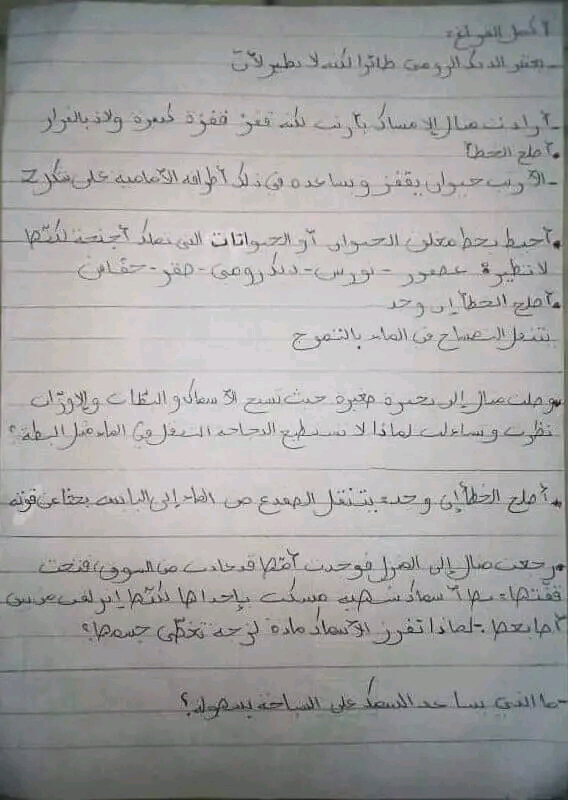 أكمل الفراغ:
- يعتبر الديك الرومي طائرا لكنه لا يطير لأن
- أرادت منال الإمساك بأرنب لكنه قفز قفزة كبيرة ولاذ بالفرار
• أصلح الخطأ
- الأرنب حيوان يقفز وتساعده في ذلك أطرافه الأمامية على شكل Z
• أحيط بخط مغلق الحيوان أو الحيوانات التي تملك أجنحة لكنها
لا تطير عصفور - نورس - ديك رومي - صقر - خفاش
• أصلح الخطأ إن وجد
يتنقل التمساح في الماء بالتموج
• وصلت منال إلى بحيرة صغيرة حيث تسبح الأسماك و البطات و الإوزات
نظرت وتساءلت لماذا لا تستطيع الدجاجة التنقل في الماء مثل البطة؟
• أصلح الخطأ إن وجد يتنقل الضفدع من الماء إلى اليابسة بحثا عن قوته
• رجعت منال إلى المنزل فوجدت أمها قد جاءت من السوق، فتحت
قفتها بها أسماك شهية مسكت بإحداها لكنها انزلقت من بين
أصابعها - لماذا تفرز الأسماك مادة لزجة تغطي جسمها؟
- ما الذي يساعد السمك على السباحة بسهولة؟